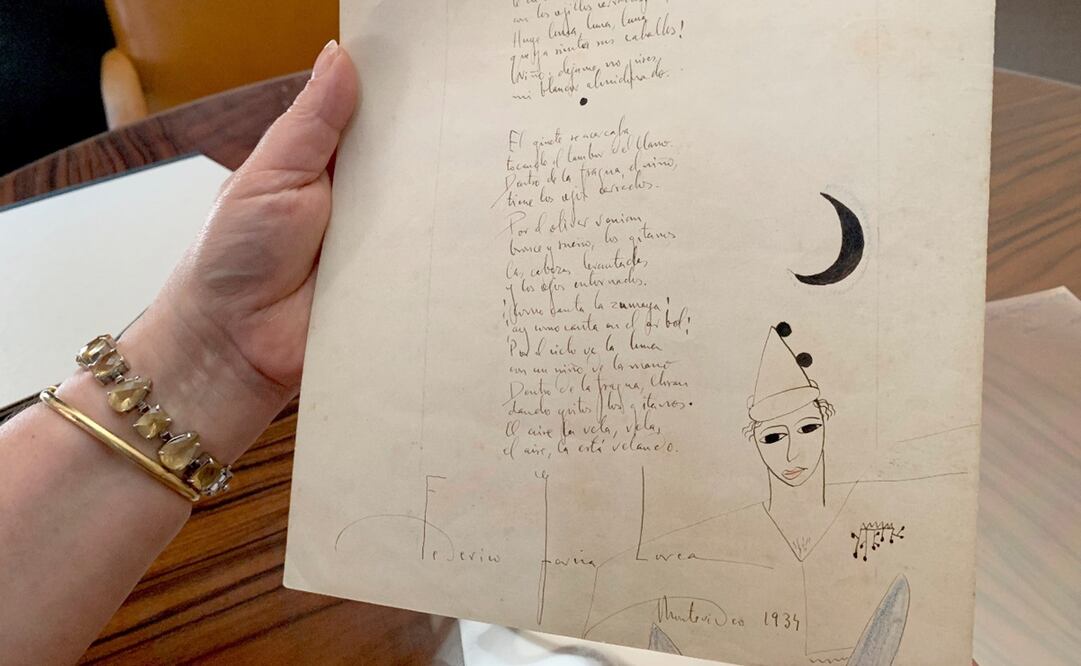 con los ojillos cerrados
Huye luna, luna, luna
que ya siento sus caballos!
Niño, dejame, no pises,
mi blancor almidonado.
El ginete se acercaba
tocando el tambor del llano.
Dentro de la fragua, el niño,
tiene los ojos cerrados.
Por el olivar venian,
bronce y sueño, los gitanos
las cabezas levantadas
y los ojos entornados.
¡Como canta la zumaya!
¡ay como canta en el arbol!
Por el cielo va la luna
con un niño de la mano
Dentro de la fragua, lloran
dando gritos, los gitanos.
El aire la vela, vela,
el aire, la está velando.
Federico García Lorca
Montevideo 1934